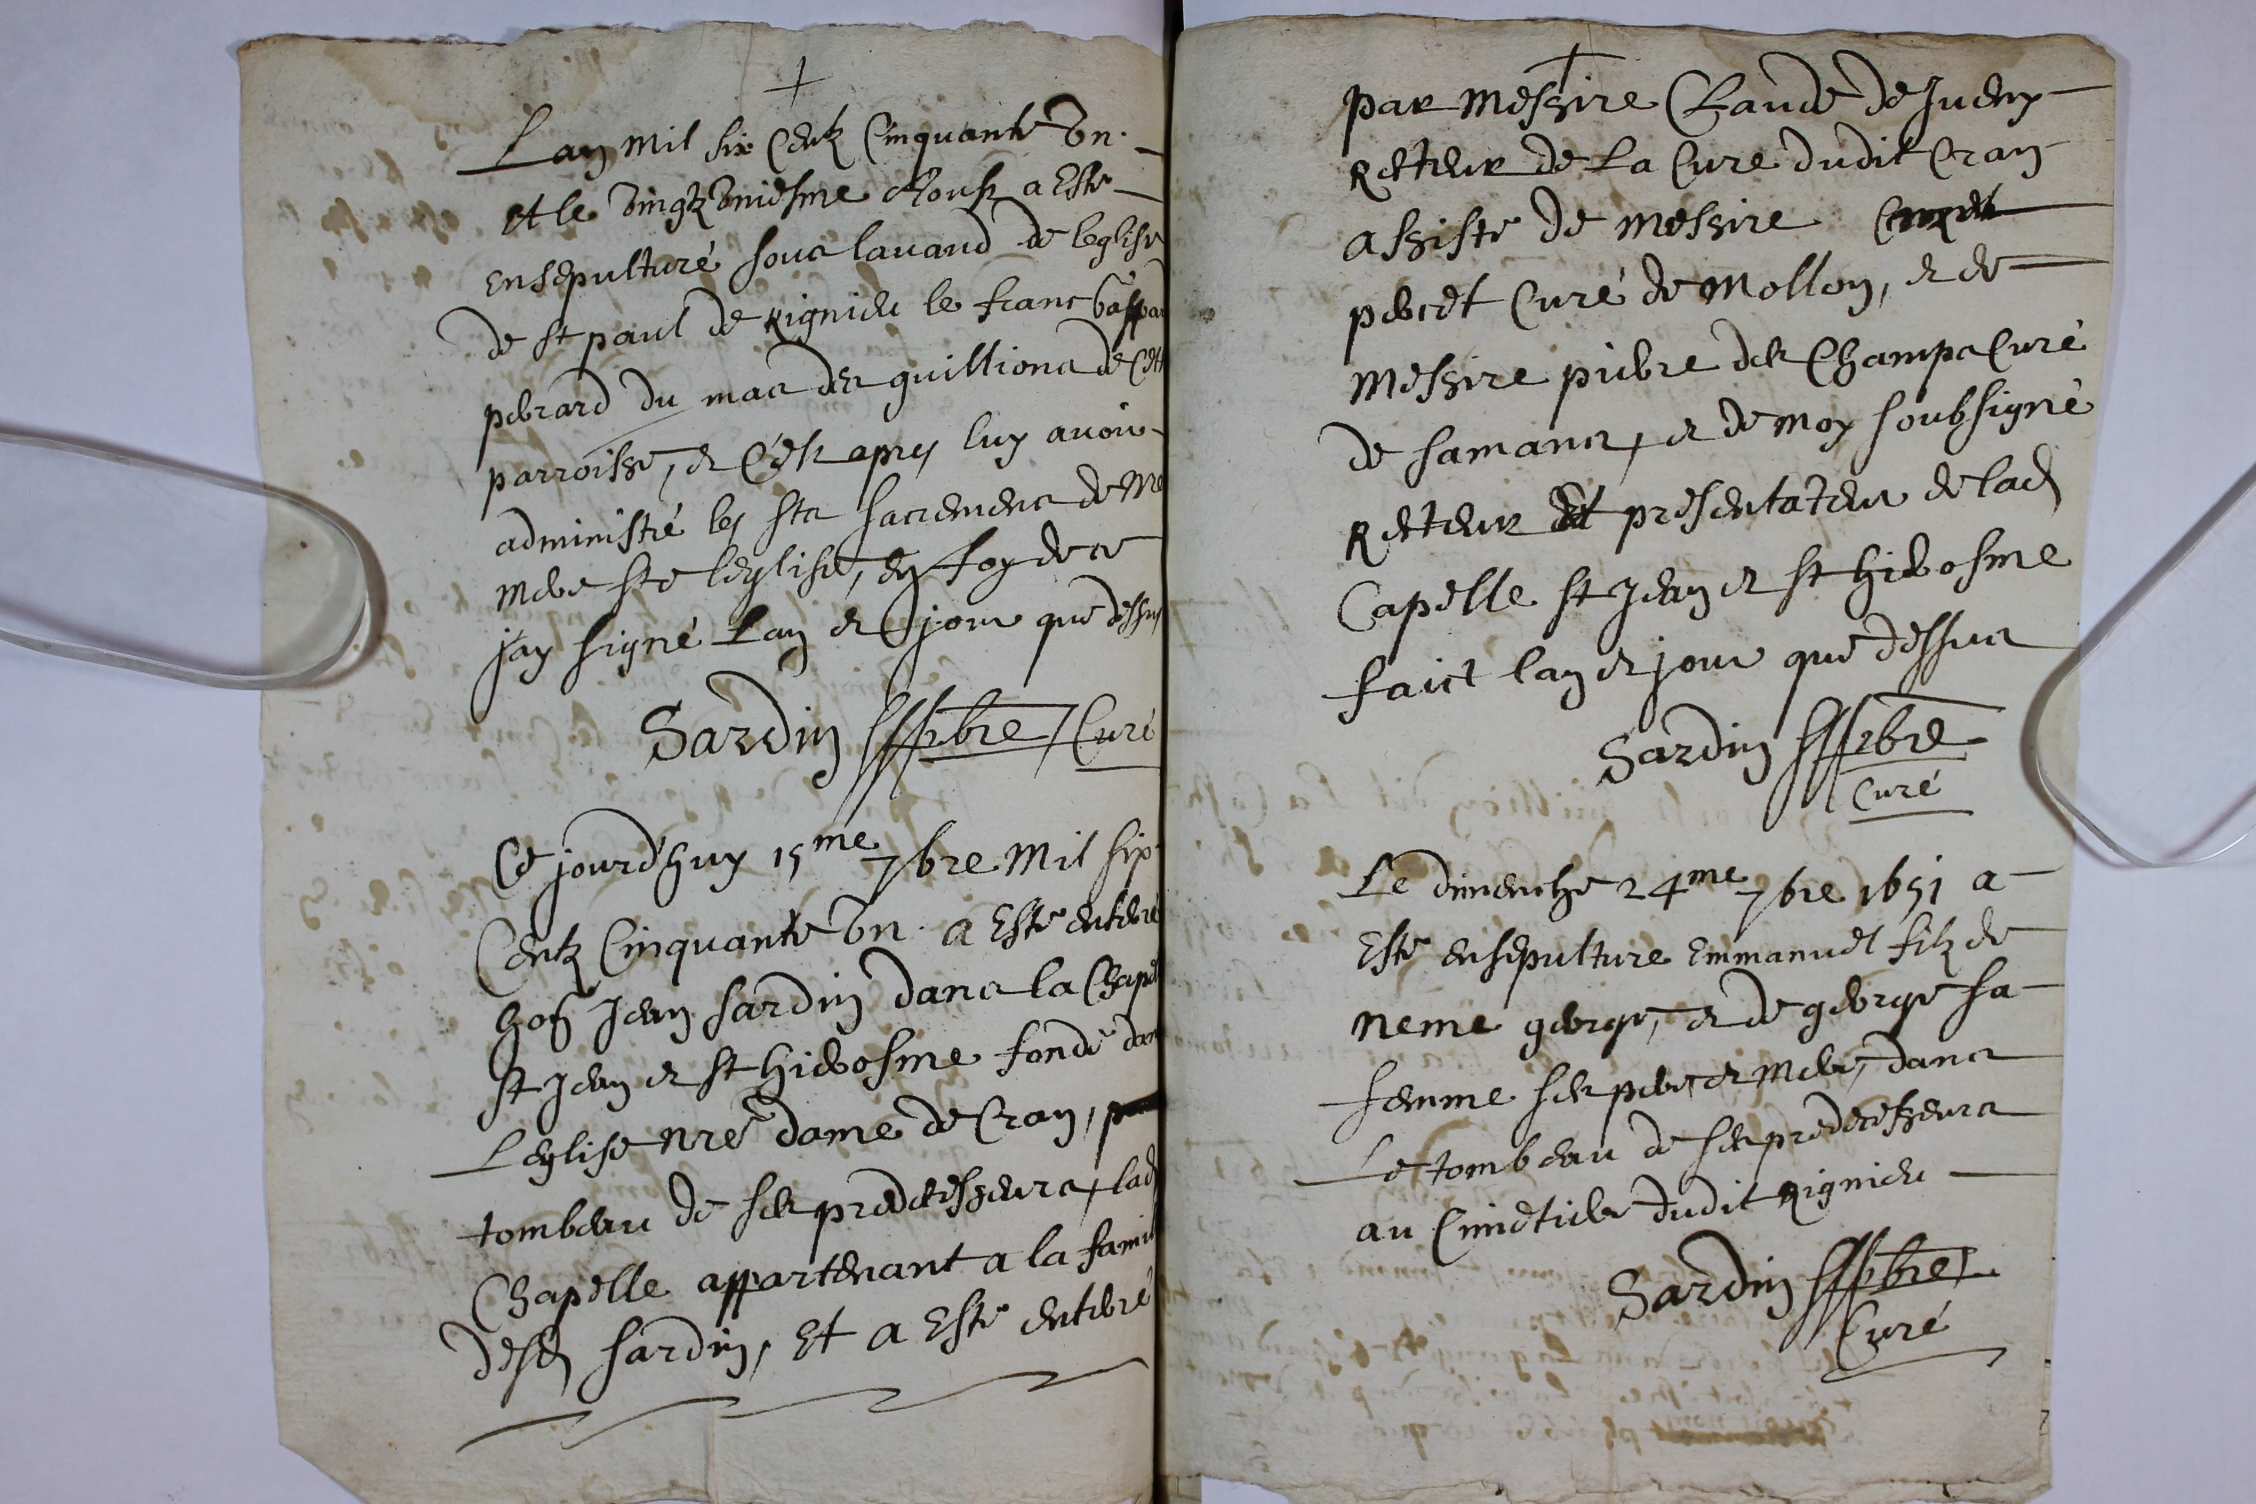 Lan mil six centz cinquante un.
et le vingtzuniesme Aoust a esté
ensepulturé sous lavand de leglise
de st paul de Rignieu le franc Gaspar
perard du mas des guillions de cett
parroisse, et c'est apres luy avoir
administré les sts sacremens de nre
mere ste leglise, en foy de ce
jay signé Lan et jour que dessus
Sardin pbre Curé
Ce jourdhuy 15me 7bre mil six
centz cinquante un. a esté enterré
hon Jean sardin dans la Chapel
st Jean et st hierosme fondé dans
Leglise nre dame de Cran,
tombeau de ses predecesseurs, lad
Chapelle appartenant a la famil
desd sardin, Et a esté enterré
par messire Claude de Jueux
Recteur de la Cure dudit Cran
assisté de messire
perret Curé de Mollon, et de
messire pierre des Champs Curé
de samans, et de moy soubsigné
Recteur Et presentateur de lad
Capelle st Jean et st hierosme
faict lan et jour que dessus
Sardin pbre
Curé
Le dimenche 24me 7bre 1651 a
esté ensepulture Emmanuel filz de
neme george, et de george sa
femme ses pere et mere, dans
Le tombeau de ses predecesseurs
au Cimetiere dudit Rignieu
Sardin pbre
Curé